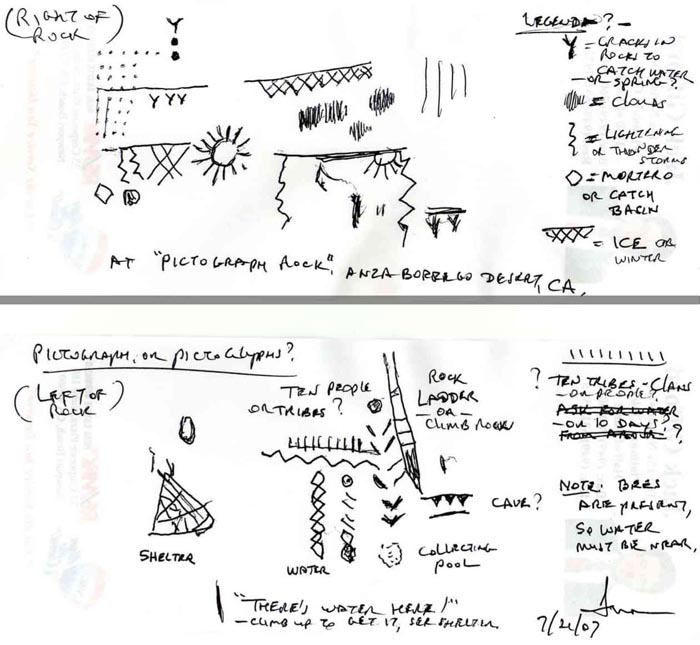 (RIGHT OF
ROCK)
LEGEND?-
Y = CRACKS IN
ROCKS TO
CATCH WATER
- OR SPRING?
= CLOUDS
= LIGHTENING
OR THUNDER
STORMS
= MORTERO
OR CATCH
BASIN
= ICE OR
WINTER
AT "PICTOGRAPH ROCK", ANZA BORREGO DESERT, CA.
PICTOGRAPH, OR PICTOGLYPHS?
(LEFT OF
ROCK)
TEN PEOPLE
OR TRIBES?
ROCK
LADDER
- OR -
CLIMB ROCKS
? TEN TRIBES - CLANS
- OR PEOPLE?
ASK FOR WATER
- OR 10 DAYS?
?
CAVE?
NOTE: BEES
ARE PRESENT,
SO WATER
MUST BE NEAR,
SHELTER
WATER
COLLECTING
POOL
"THERE'S WATER HERE!"
- CLIMB UP TO GET IT, SEE SHELTER.
7/21/07